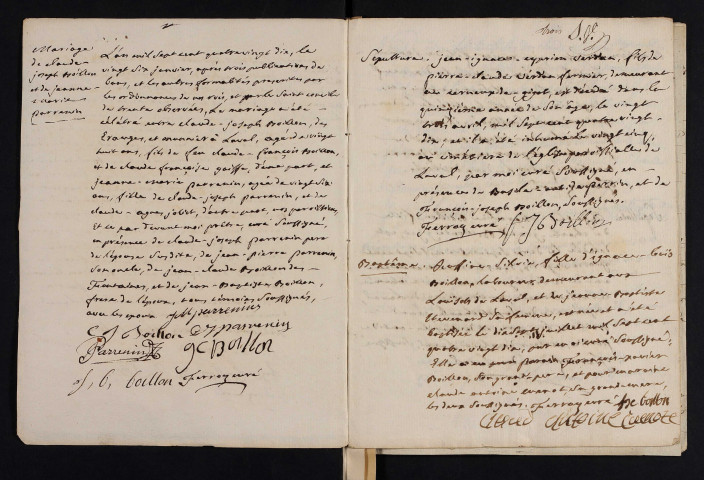 Mariage
de claude
joseph Boillon
et de jeanne
marie
parrenin
L'an mil sept cent quatre vingt dix, le
vingt six janvier, après trois publications de
bans, et les autres formalités prescrites par
les ordonnances de nos rois, et par le Saint concile
de trente observées, Le mariage a été
célébré entre claude-joseph Boillon, des
Etranges, et munnier à Laval, agé de vingt
huit ans, fils de feu claude-françois Boillon,
et de claude françoise gaiffe, d'une part, et
jeanne-marie parrenin, agée de vingt six
ans, fille de claude-joseph parrenin, et de
claude-agnes, d'autre part, nos paroissiens,
Et ce par devant moi prêtre, curé Soussigné,
en présence de claude-joseph parrenin pere
de l'épouse Susdite, de jean-pierre parrenin,
Son oncle, de jean-claude Boillon des-
Fontaines, et de jean-Baptiste Boillon,
frere de l'époux, tous témoins Soussignés,
avec les epoux
C J Boillon C J parrenin
Parrenin JC Boillon
J, b, boillon Ferroy curé
trois
Sépulture - jean-ignace-cyprien Verdan, fils de
pierre-claude Verdan fermier, demeurant
au, est décédé dans le
quinzieme année de Son âge, le vingt
trois avril, mil Sept cent quatre vingt-
dix, et il a été inhumé le vingt cinq,
au cimetiere de l'église paroissiale de
Laval, par moi curé Soussigné, en
présences de et de
François-joseph Boillon, Soussignés.
Ferroy curé f, J Boillon
Baptême - fille d'ignace-
Boillon, Laboureur, demeurant aux
de Laval, et de jeanne-Baptiste
Sa femme, est née et a été
baptisée le dix Sept juillet mil Sept cent
quatre vingt dix, par moi curé Soussigné,
Elle a eu pour parrain François-xavier
Boillon, Son grand pere, et pour marraine
claude antoine Sa grand-mere,
les deux Soussignés. Ferroy curé boillon
claude antoine